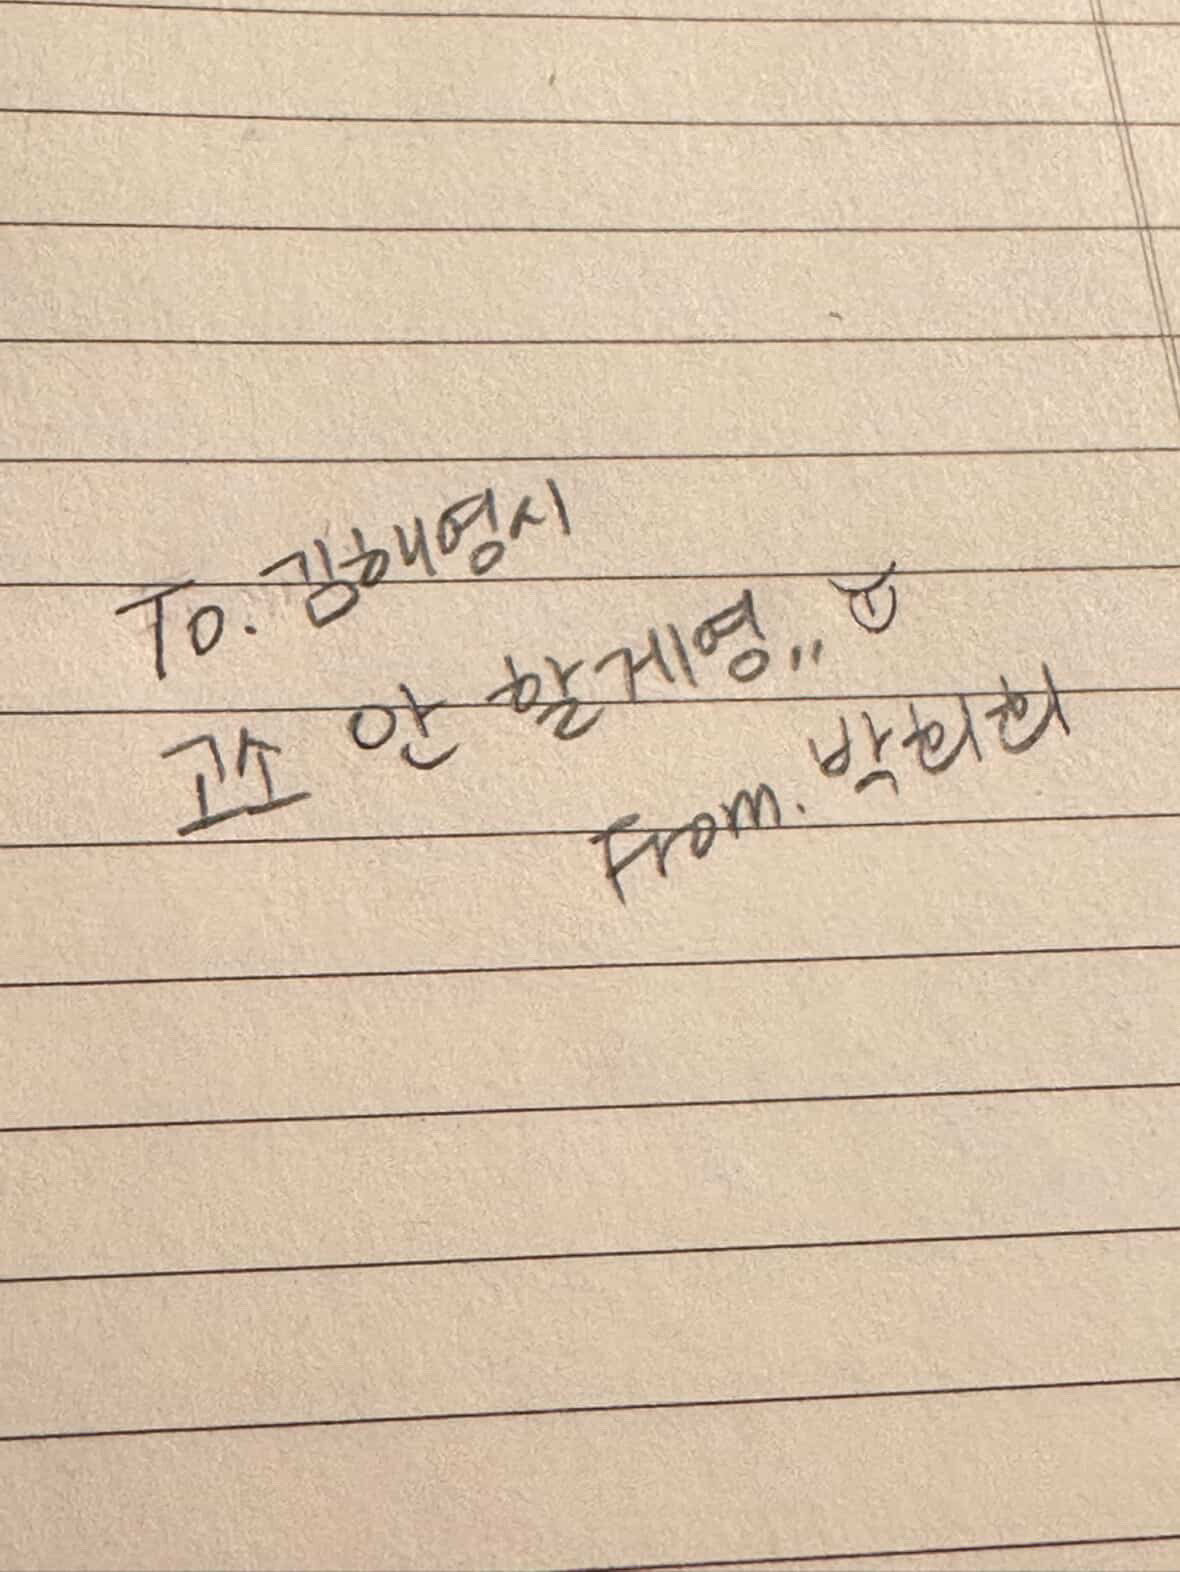 To. 김해영시
고소 안 할게영..
From. 박희희